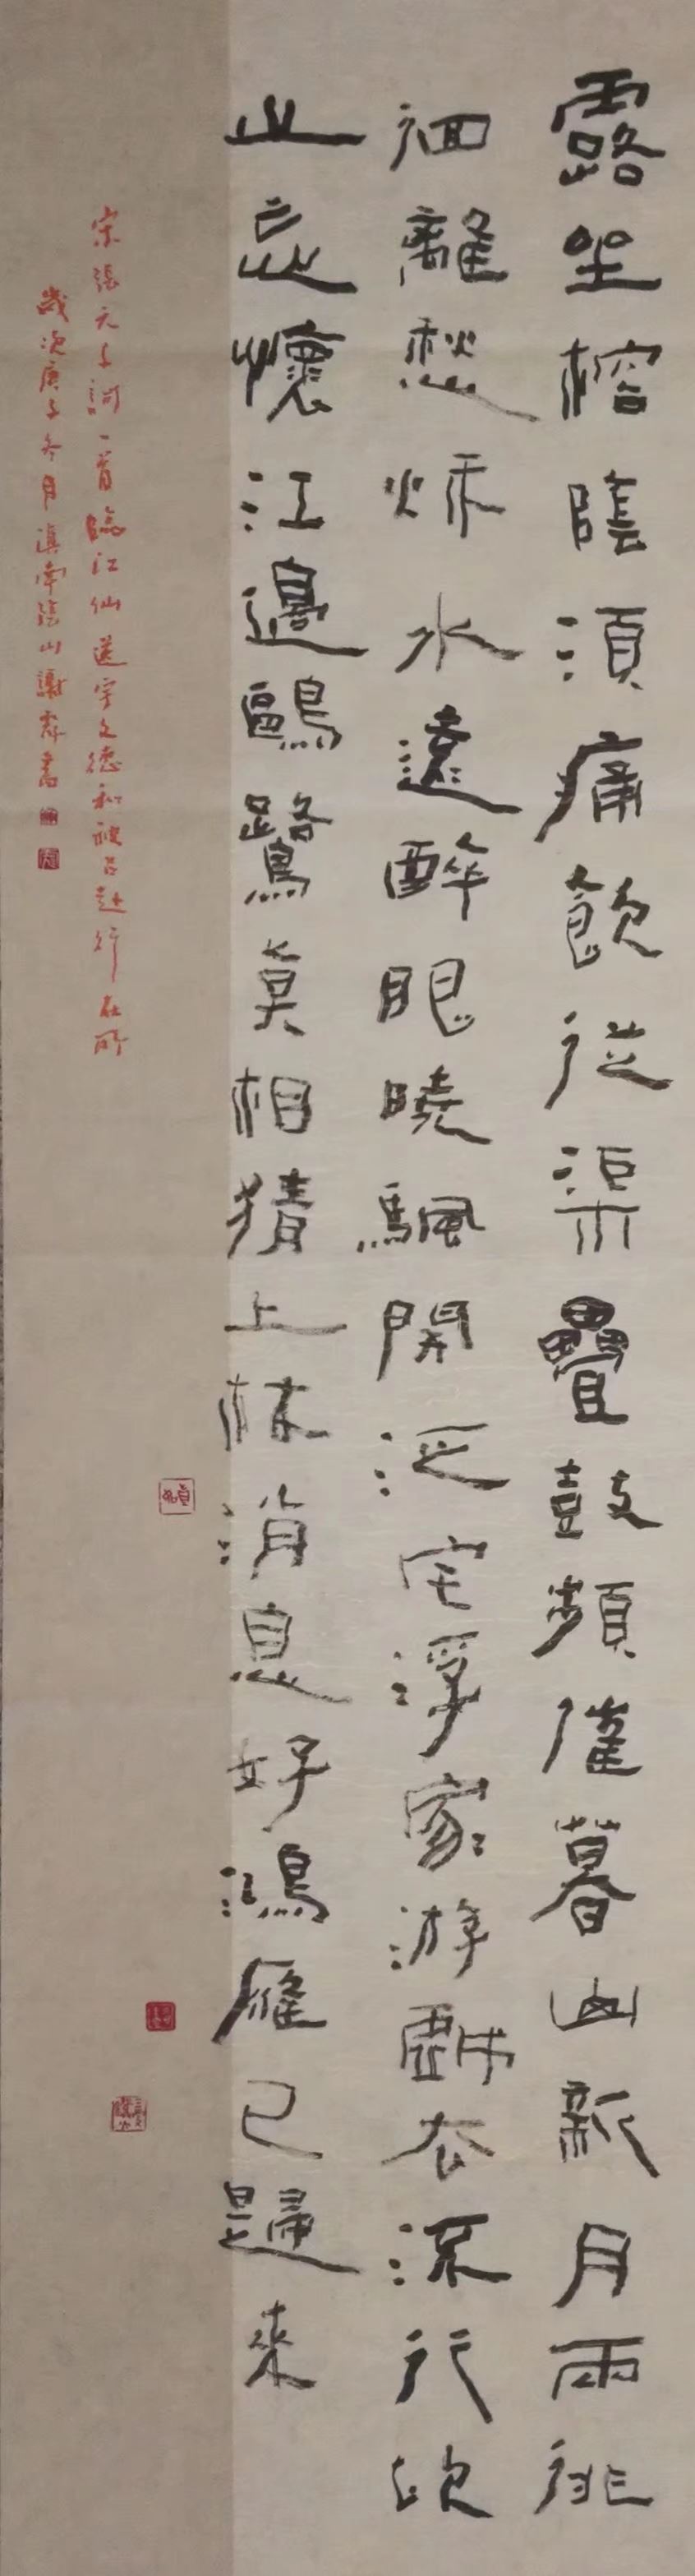 露坐榕陰湏痛飲從渠疊鼓頻催暮山新月兩徘
徊離愁秌水遠醉眼曉颿開泛宅浮家游戲去流行坎
止忘懷江邊鷗鷺莫相猜上林消息好鴻雁已歸來
宋張元干詞一首臨江仙送宇文德和被召赴行在所
歲次庚子冬月滇南山謝書